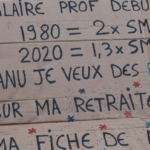 ALAIRE PROF DEBU
1980 = 2x SM
2020 = 1,3x SM
ANU JE VEUX DES
SUR MA RETRAITE
MA FICHE DE